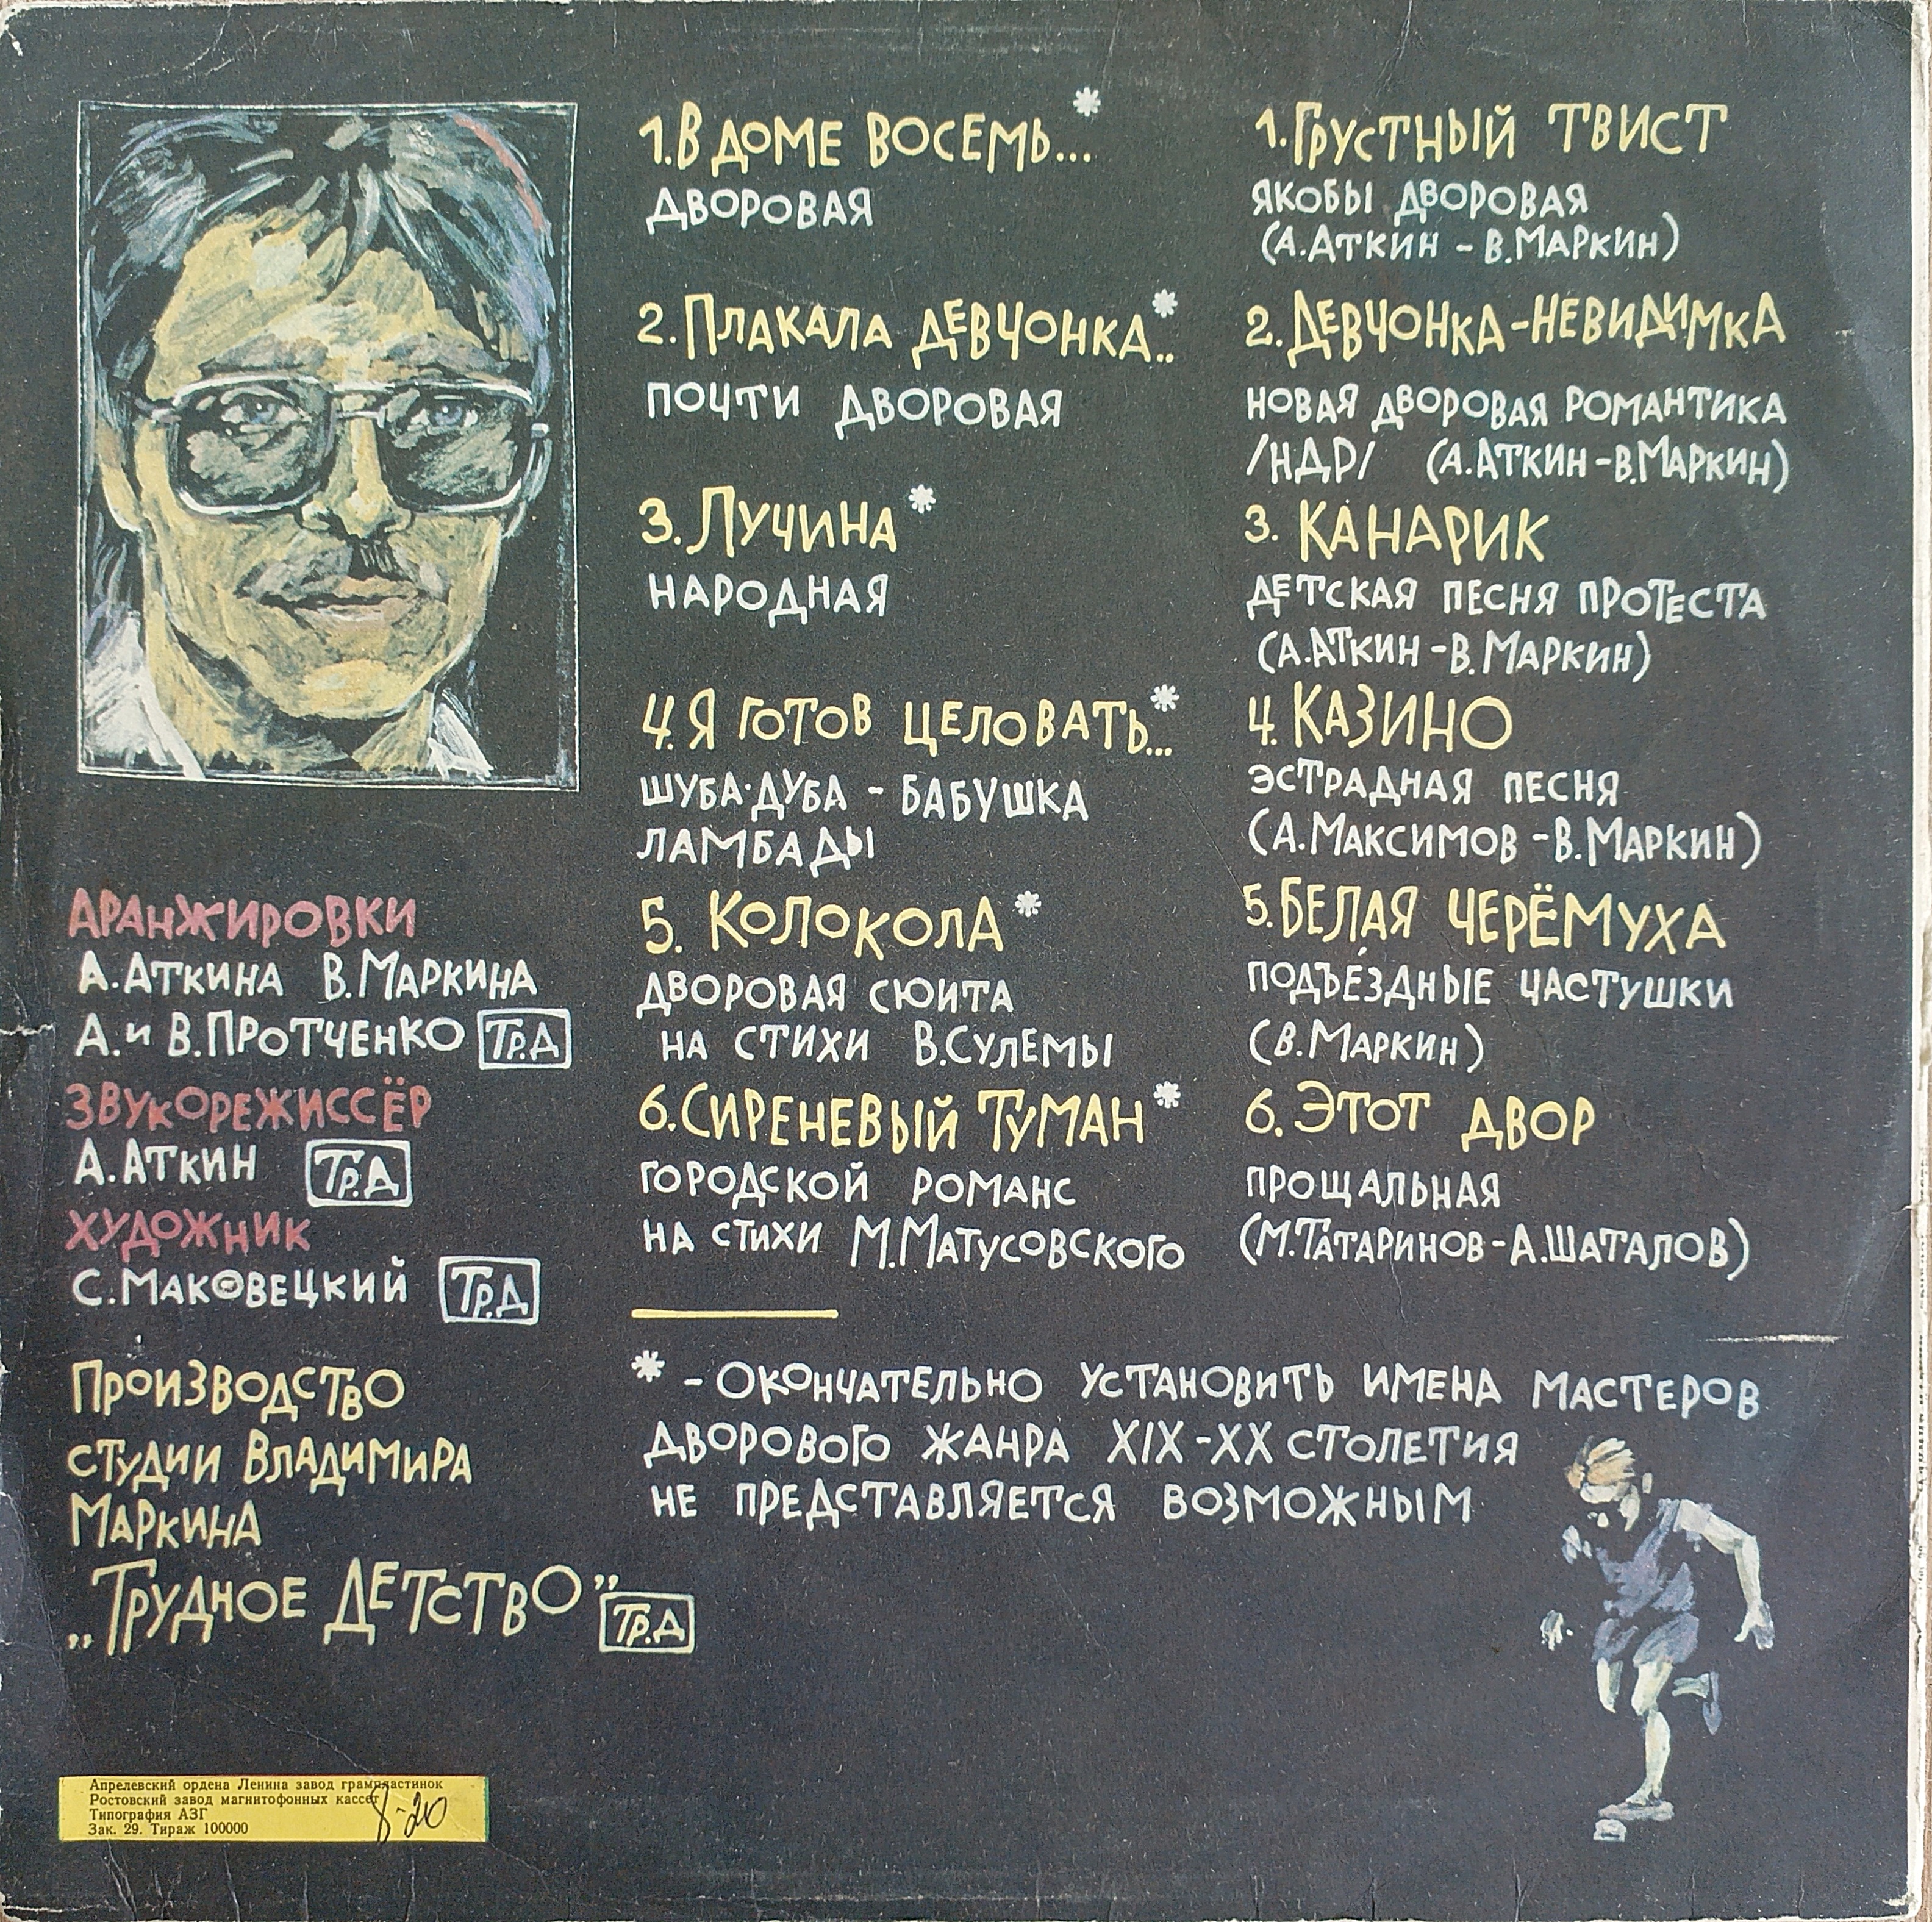 1. В ДОМЕ ВОСЕМЬ...*
ДВОРОВАЯ
2. ПЛАКАЛА ДЕВЧОНКА..*
ПОЧТИ ДВОРОВАЯ
3. ЛУЧИНА*
НАРОДНАЯ
4. Я ГОТОВ ЦЕЛОВАТЬ...*
ШУБА-ДУБА - БАБУШКА
ЛАМБАДЫ
5. КОЛОКОЛА*
ДВОРОВАЯ СЮИТА
НА СТИХИ В.СУЛЕМЫ
6. СИРЕНЕВЫЙ ТУМАН*
ГОРОДСКОЙ РОМАНС
НА СТИХИ М.МАТУСОВСКОГО
1. ГРУСТНЫЙ ТВИСТ
ЯКОБЫ ДВОРОВАЯ
(А.АТКИН - В.МАРКИН)
2. ДЕВЧОНКА-НЕВИДИМКА
НОВАЯ ДВОРОВАЯ РОМАНТИКА
/НДР/ (А.АТКИН - В.МАРКИН)
3. КАНАРИК
ДЕТСКАЯ ПЕСНЯ ПРОТЕСТА
(А.АТКИН - В.МАРКИН)
4. КАЗИНО
ЭСТРАДНАЯ ПЕСНЯ
(А.МАКСИМОВ - В.МАРКИН)
5. БЕЛАЯ ЧЕРЁМУХА
ПОДЪЕ́ЗДНЫЕ ЧАСТУШКИ
(В.МАРКИН)
6. ЭТОТ ДВОР
ПРОЩАЛЬНАЯ
(М.ТАТАРИНОВ - А.ШАТАЛОВ)
* - ОКОНЧАТЕЛЬНО УСТАНОВИТЬ ИМЕНА МАСТЕРОВ
ДВОРОВОГО ЖАНРА XIX-XX СТОЛЕТИЯ
НЕ ПРЕДСТАВЛЯЕТСЯ ВОЗМОЖНЫМ
АРАНЖИРОВКИ
А.АТКИНА В.МАРКИНА
А. И В.ПРОТЧЕНКО ТР.Д
ЗВУКОРЕЖИССЁР
А.АТКИН ТР.Д
ХУДОЖНИК
С.МАКОВЕЦКИЙ ТР.Д
ПРОИЗВОДСТВО
СТУДИИ ВЛАДИМИРА
МАРКИНА
„ТРУДНОЕ ДЕТСТВО” ТР.Д
Апрелевский ордена Ленина завод грампластинок
Ростовский завод магнитофонных кассет
Типография АЗГ
Зак. 29. Тираж 100000
8-20